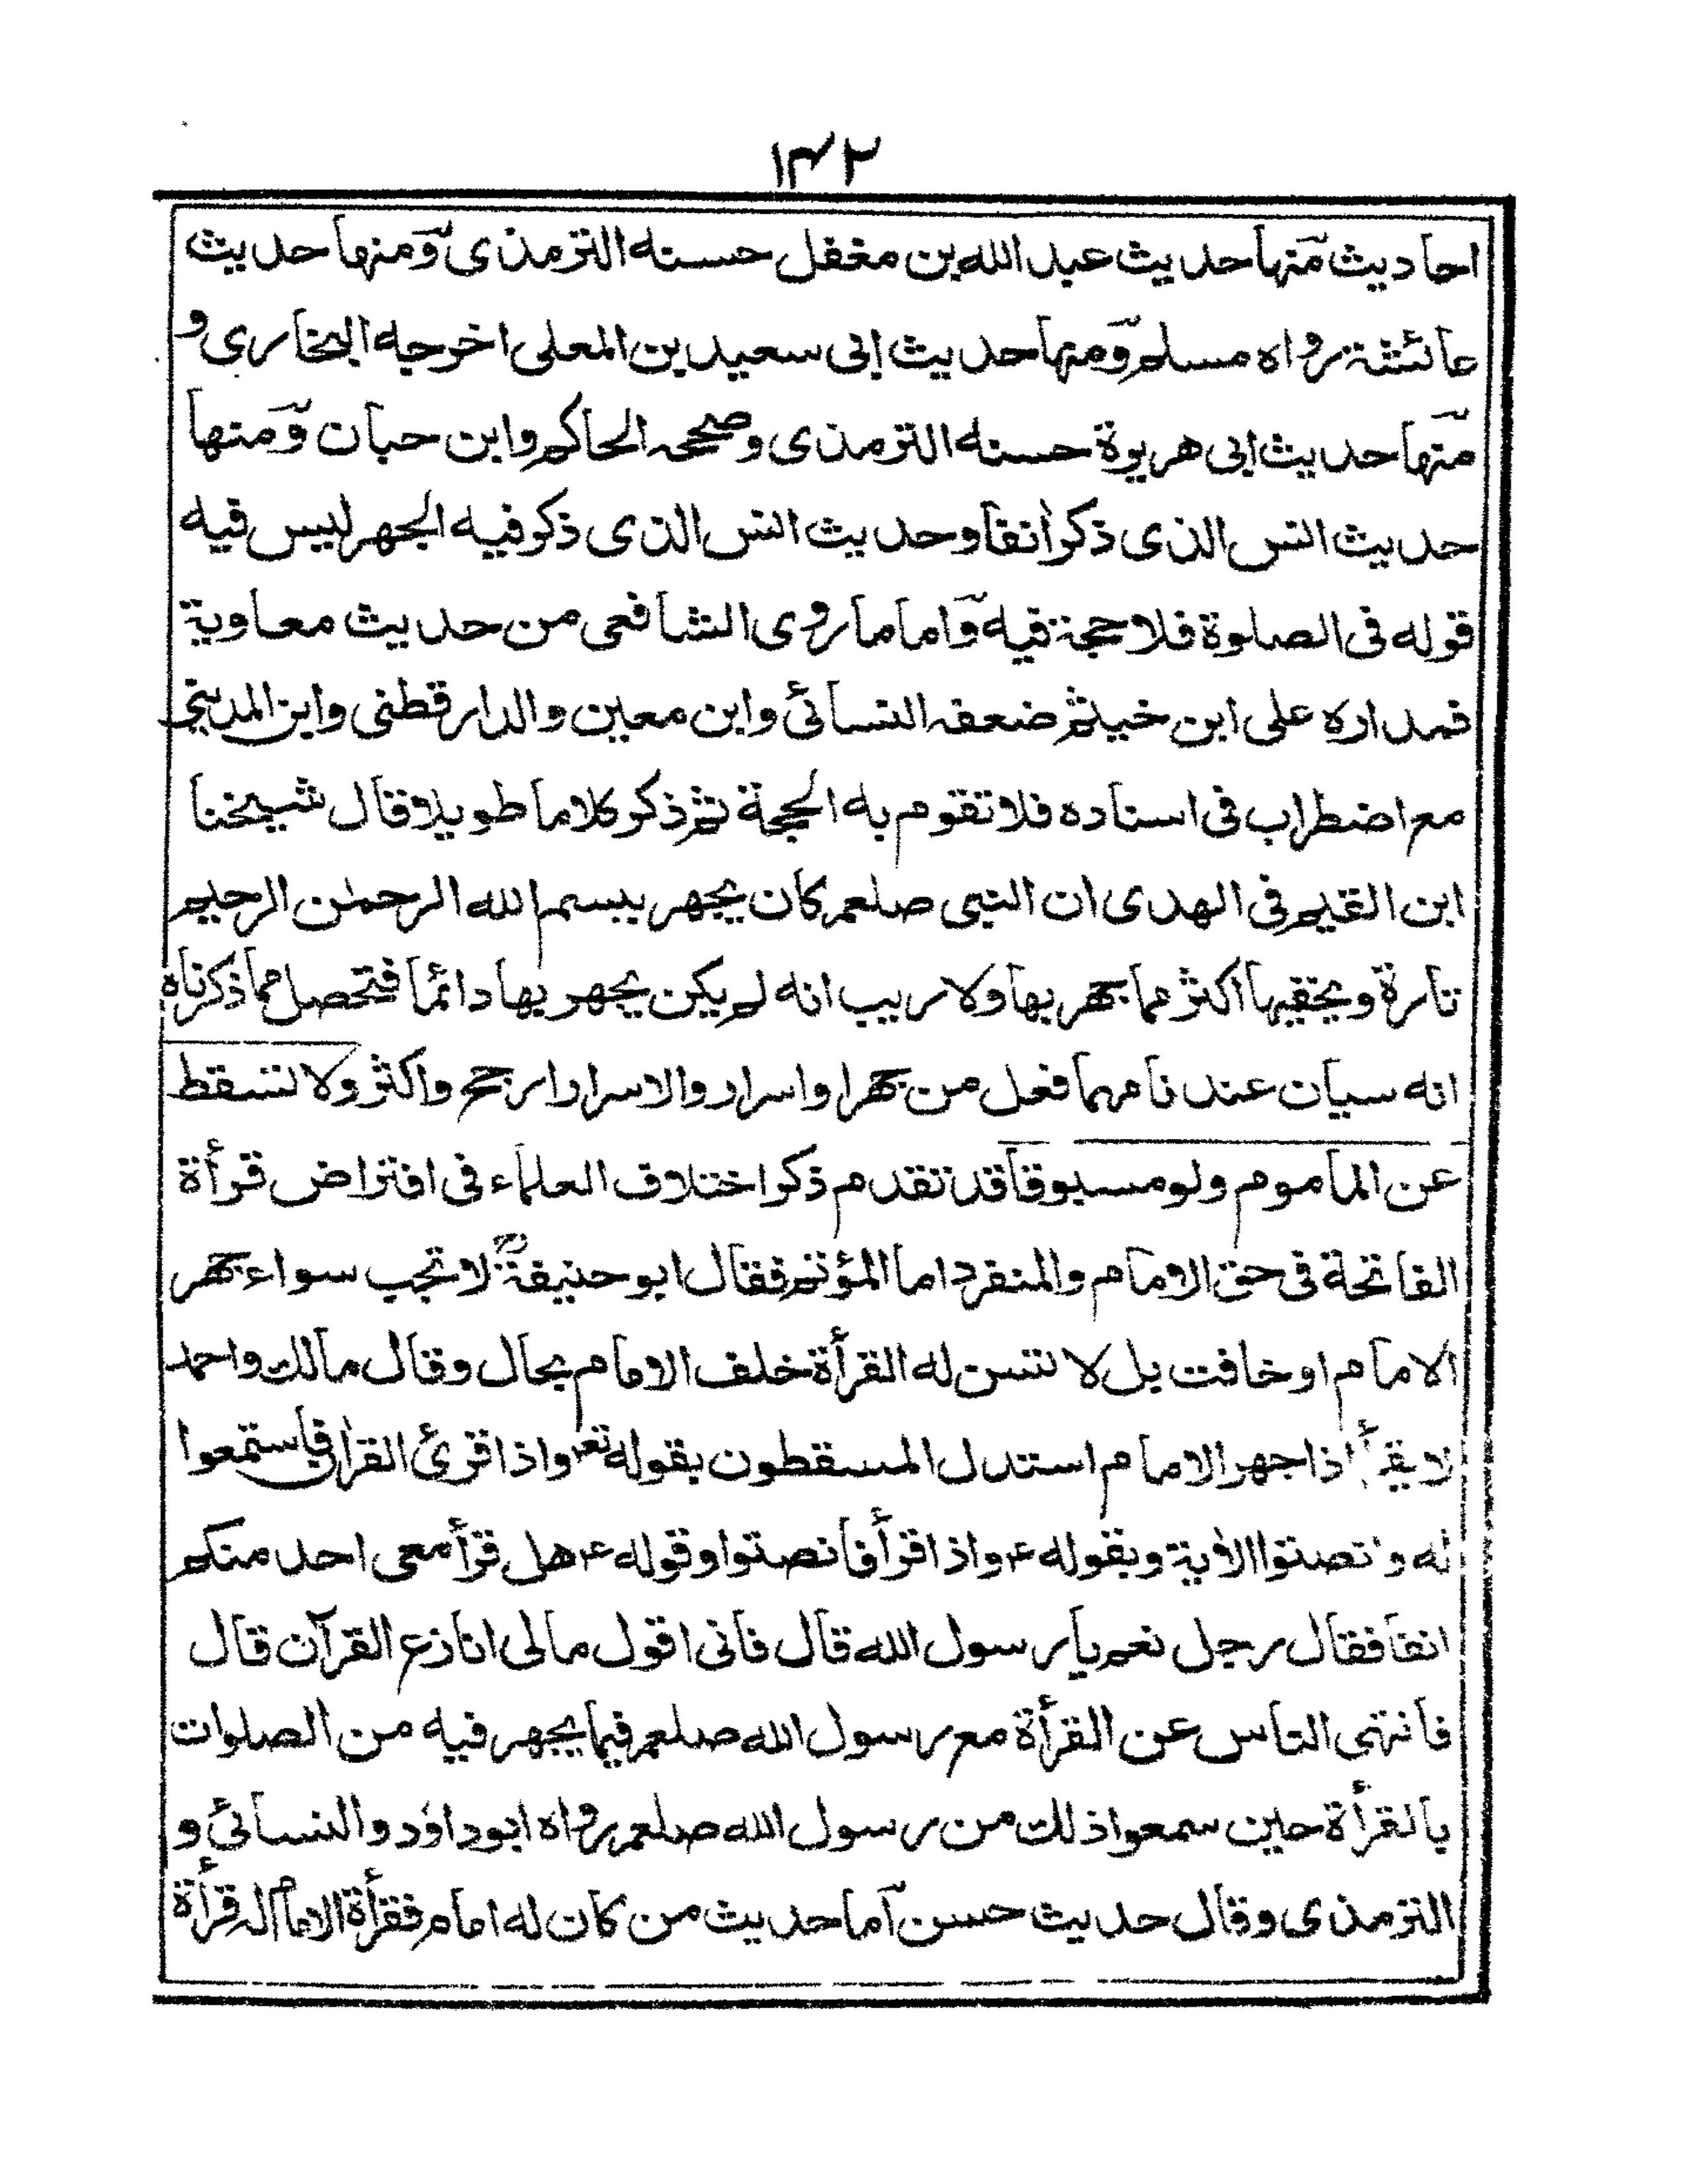 ١٣٢
احاديث منها حديث عبد الله بن مغفل حسنه الترمذى ومنها حديث
عائشة رواه مسلم ومنها حديث ابى سعيد بن المعلى اخرجه البخارى و
منها حديث ابى هريرة حسنه الترمذى وصححه الحاكم وابن حبان ومنها
حديث انس الذى ذكر أنفا وحديث انس الذى ذكر فيه الجهر ليس فيه
قوله فى الصلوة فلا حجة فيه واما ما روى الشافعى من حديث معاوية
فمداره على ابن خيثم ضعفه النسائى وابن معين والدارقطنى وابن المدينى
مع اضطراب فى اسناده فلا تقوم به الحجة ثم ذكر كلاما طويلا قال شيخنا
ابن القيم فى الهدى ان النبى صلعم كان يجهر ببسم الله الرحمٰن الرحيم
تارة ويخفيها اكثر مما جهر بها ولا ريب انه لم يكن يجهر بها دائما فتحصل مما ذكرناه
انه سيان عندنا مهما فعل من جهر او اسرار والاسرار ارجح واكثر ولا تسقط
عن المأموم ولو مسبوقا قد تقدم ذكر اختلاف العلماء فى افتراض قرأة
الفاتحة فى حق الامام والمنفرد اما المؤتم فقال ابو حنيفة رح لا تجب سواء جهر
الامام او خافت بل لا تسن له القرأة خلف الامام بحال وقال مالك واحمد
لا يقرأ اذا جهر الامام استدل المسقطون بقوله تعـ واذا قرئ القرأن فاستمعوا
له وانصتوا الأية وبقوله ع واذا قرأ فانصتوا وقوله ع هل قرأ معى احد منكم
انفا فقال رجل نعم يا رسول الله قال فانى اقول مالى انازع القرآن قال
فانتهى الناس عن القرأة مع رسول الله صلعم فيما يجهر فيه من الصلوات
بالقرأة حين سمعوا ذلك من رسول الله صلعم رواه ابوداؤد والنسائى و
الترمذى وقال حديث حسن اما حديث من كان له امام فقرأة الامام له قرأة